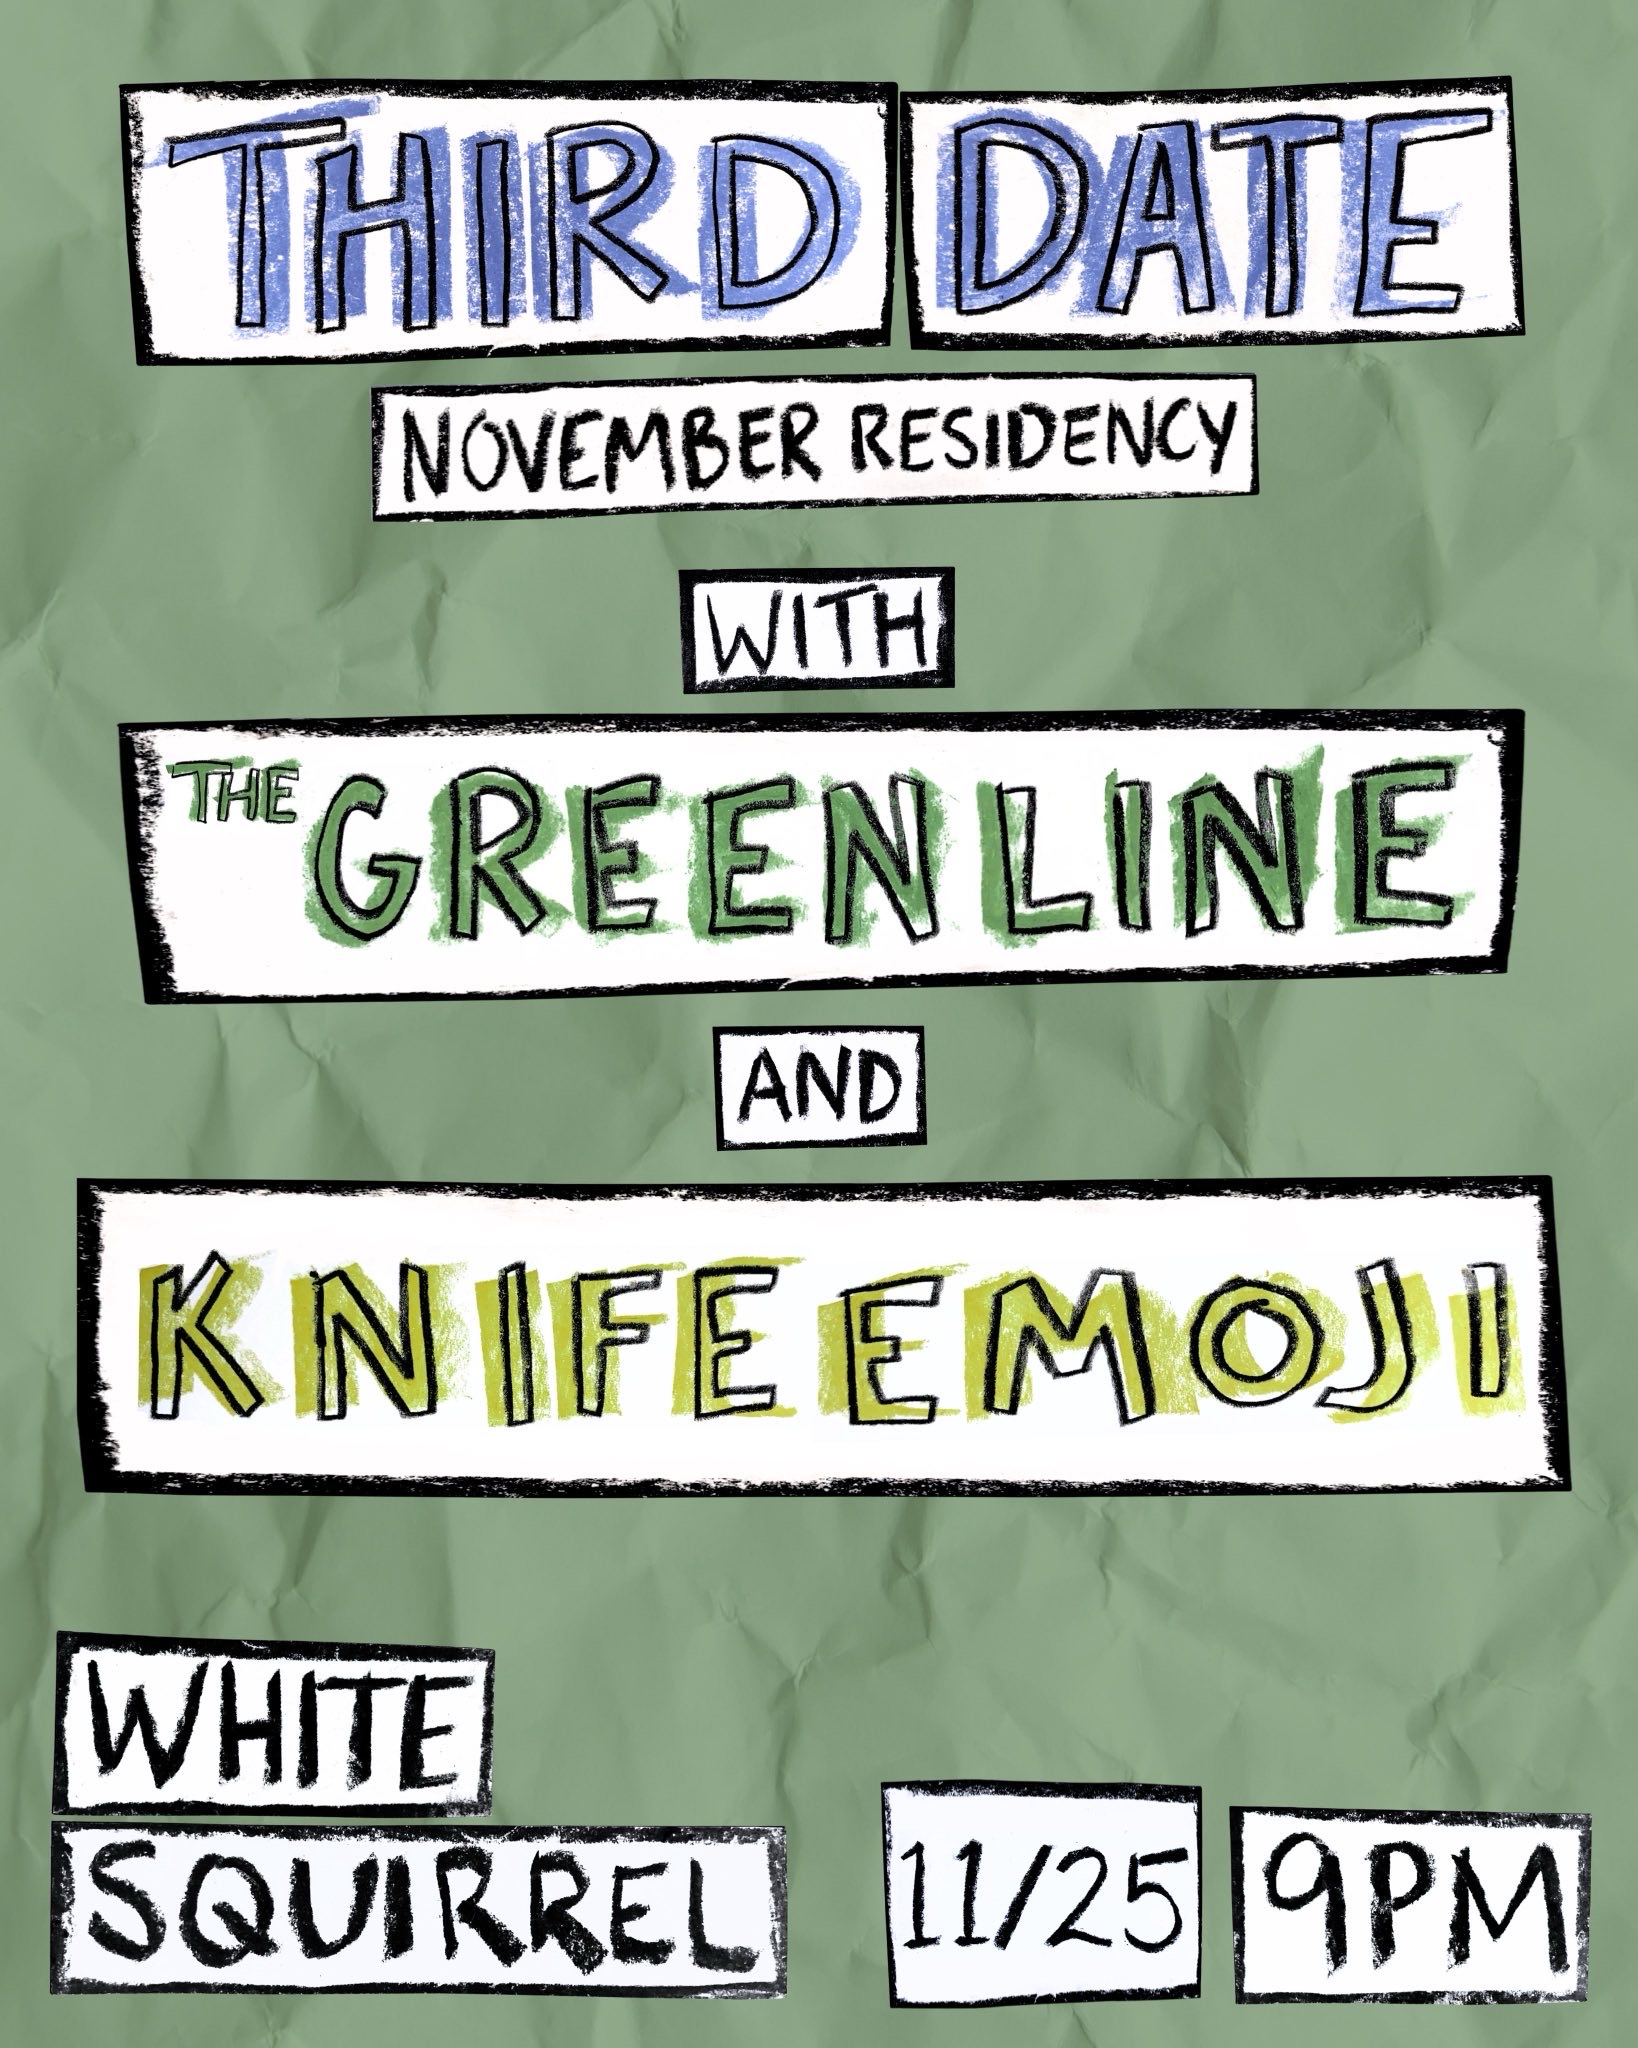 THIRD DATE
NOVEMBER RESIDENCY
WITH
THE GREEN LINE
AND
KNIFE EMOJI
WHITE
SQUIRREL
11/25 9PM